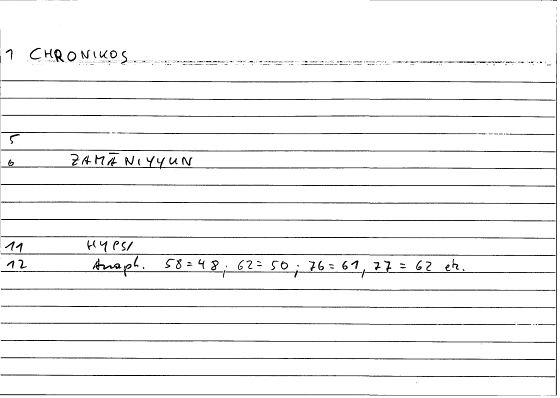 1 CHRONIKOS
5
6 ZAMĀNIYYUN
11 HYPSI
12 Anaph. 58=48; 62=50; 76=61, 77=62 etc.